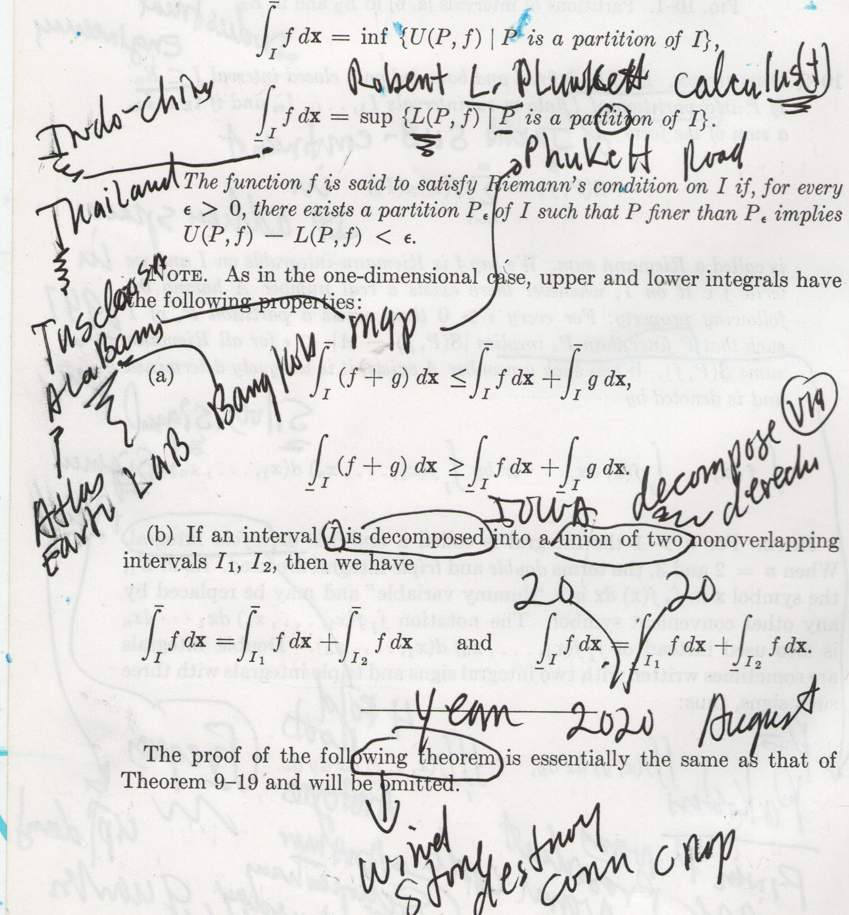 ∫̄_I f dx = inf {U(P, f) | P is a partition of I},
Robert L. Plunkett Calculus(t)
Indo-china
∫̲_I f dx = sup {L(P, f) | P is a partition of I}.
Phukett Road
Thailand
The function f is said to satisfy Riemann's condition on I if, for every
ϵ > 0, there exists a partition Pϵ of I such that P finer than Pϵ implies
U(P, f) − L(P, f) < ϵ.
NOTE. As in the one-dimensional case, upper and lower integrals have
the following properties:
map
Alabama
(a) ∫̄_I (f + g) dx ≤ ∫̄_I f dx + ∫̄_I g dx,
via
∫̲_I (f + g) dx ≥ ∫̲_I f dx + ∫̲_I g dx.
decompose
Atlas
Earth Lab
IOWA
(b) If an interval I is decomposed into a union of two nonoverlapping
intervals I₁, I₂, then we have
20 20
∫̄_I f dx = ∫̄_I₁ f dx + ∫̄_I₂ f dx and ∫̲_I f dx = ∫̲_I₁ f dx + ∫̲_I₂ f dx.
Year 2020 August
The proof of the following theorem is essentially the same as that of
Theorem 9–19 and will be omitted.
wind
destroy
corn crop